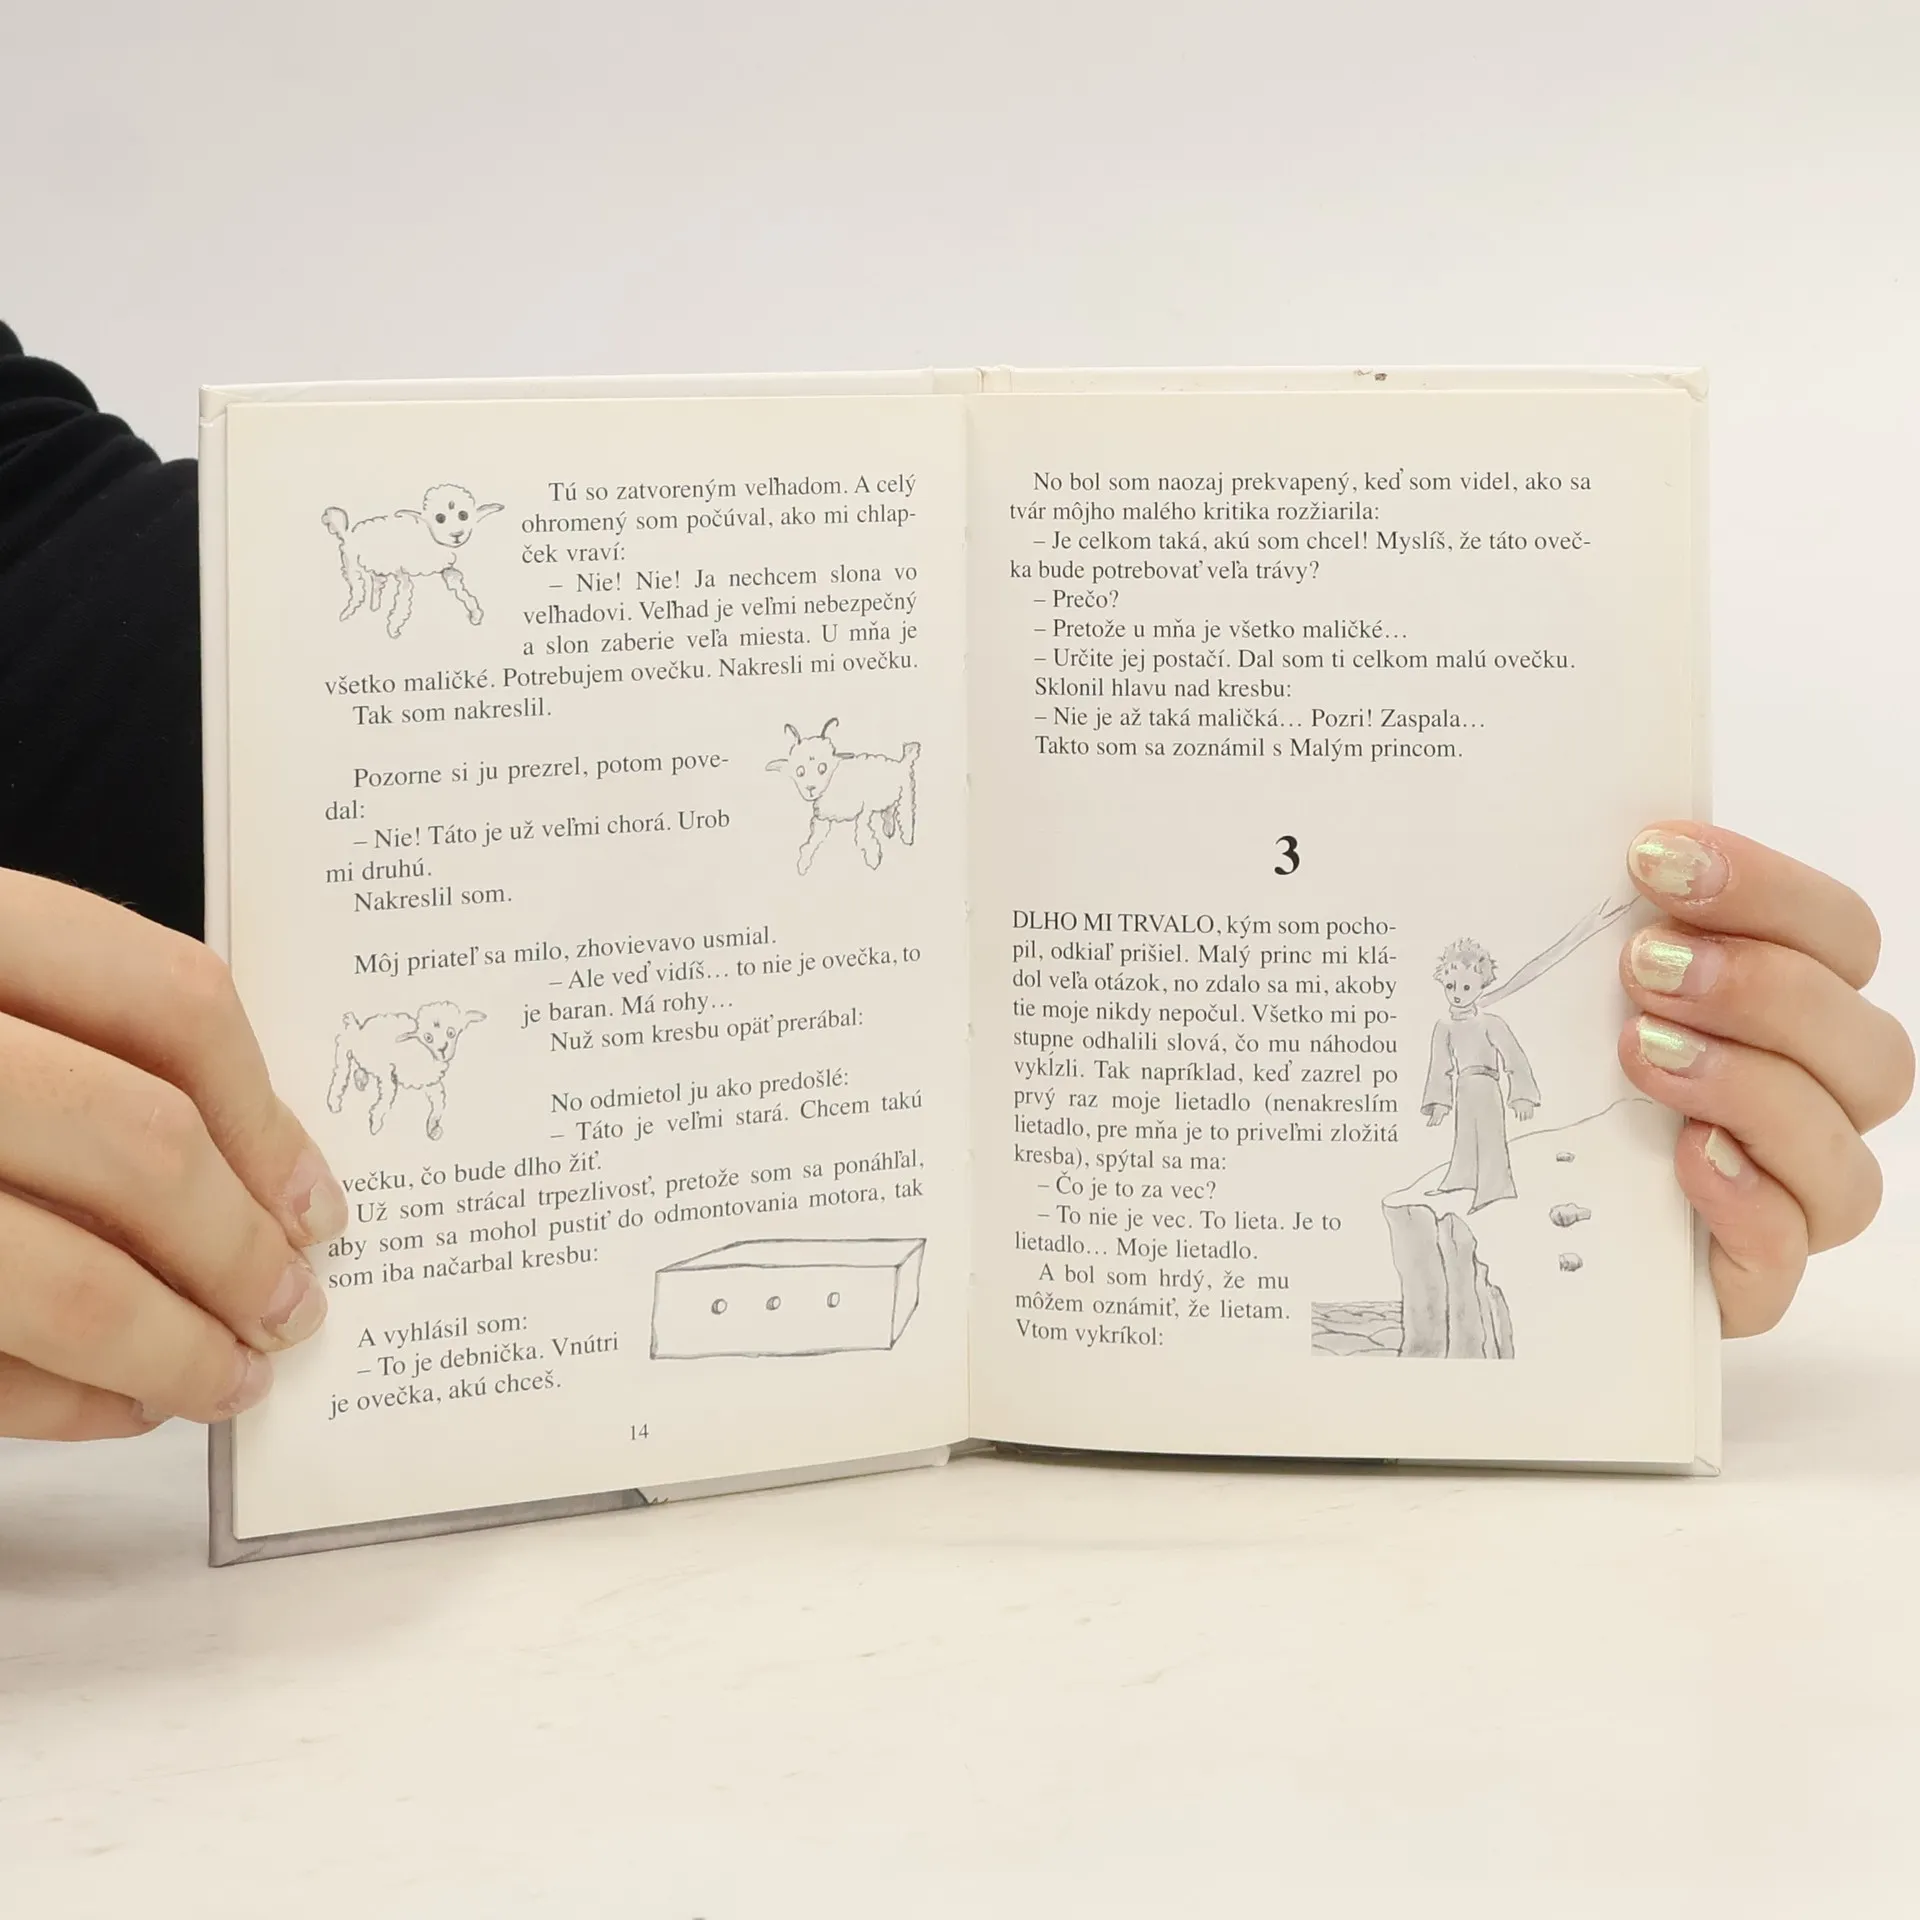 Tú so zatvoreným veľhadom. A celý
ohromený som počúval, ako mi chlap-
ček vraví:
– Nie! Nie! Ja nechcem slona vo
veľhadovi. Veľhad je veľmi nebezpečný
a slon zaberie veľa miesta. U mňa je
všetko maličké. Potrebujem ovečku. Nakresli mi ovečku.
Tak som nakreslil.
Pozorne si ju prezrel, potom pove-
dal:
– Nie! Táto je už veľmi chorá. Urob
mi druhú.
Nakreslil som.
Môj priateľ sa milo, zhovievavo usmial.
– Ale veď vidíš… to nie je ovečka, to
je baran. Má rohy…
Nuž som kresbu opäť prerábal:
No odmietol ju ako predošlé:
– Táto je veľmi stará. Chcem takú
večku, čo bude dlho žiť.
Už som strácal trpezlivosť, pretože som sa ponáhľal,
aby som sa mohol pustiť do odmontovania motora, tak
som iba načarbal kresbu:
A vyhlásil som:
– To je debnička. Vnútri
je ovečka, akú chceš.
14
No bol som naozaj prekvapený, keď som videl, ako sa
tvár môjho malého kritika rozžiarila:
– Je celkom taká, akú som chcel! Myslíš, že táto oveč-
ka bude potrebovať veľa trávy?
– Prečo?
– Pretože u mňa je všetko maličké…
– Určite jej postačí. Dal som ti celkom malú ovečku.
Sklonil hlavu nad kresbu:
– Nie je až taká maličká… Pozri! Zaspala…
Takto som sa zoznámil s Malým princom.
3
DLHO MI TRVALO, kým som pocho-
pil, odkiaľ prišiel. Malý princ mi klá-
dol veľa otázok, no zdalo sa mi, akoby
tie moje nikdy nepočul. Všetko mi po-
stupne odhalili slová, čo mu náhodou
vykĺzli. Tak napríklad, keď zazrel po
prvý raz moje lietadlo (nenakreslím
lietadlo, pre mňa je to priveľmi zložitá
kresba), spýtal sa ma:
– Čo je to za vec?
– To nie je vec. To lieta. Je to
lietadlo… Moje lietadlo.
A bol som hrdý, že mu
môžem oznámiť, že lietam.
Vtom vykríkol: